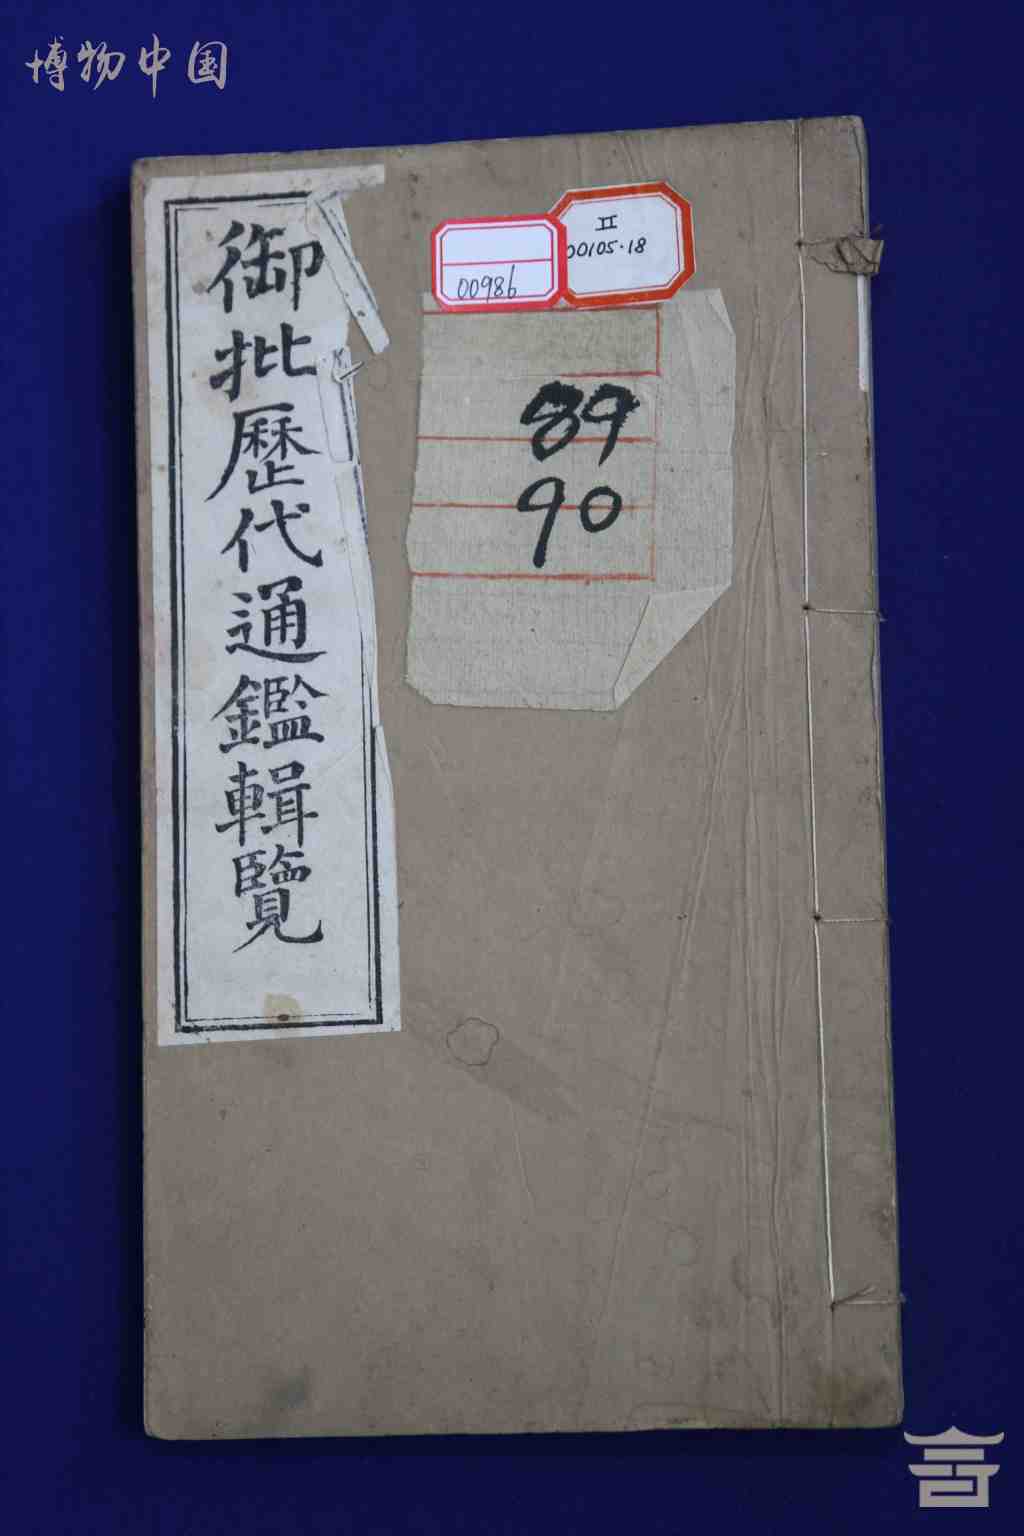 博物中国
御批歷代通鑑輯覽
00986
II
00105·18
89
90